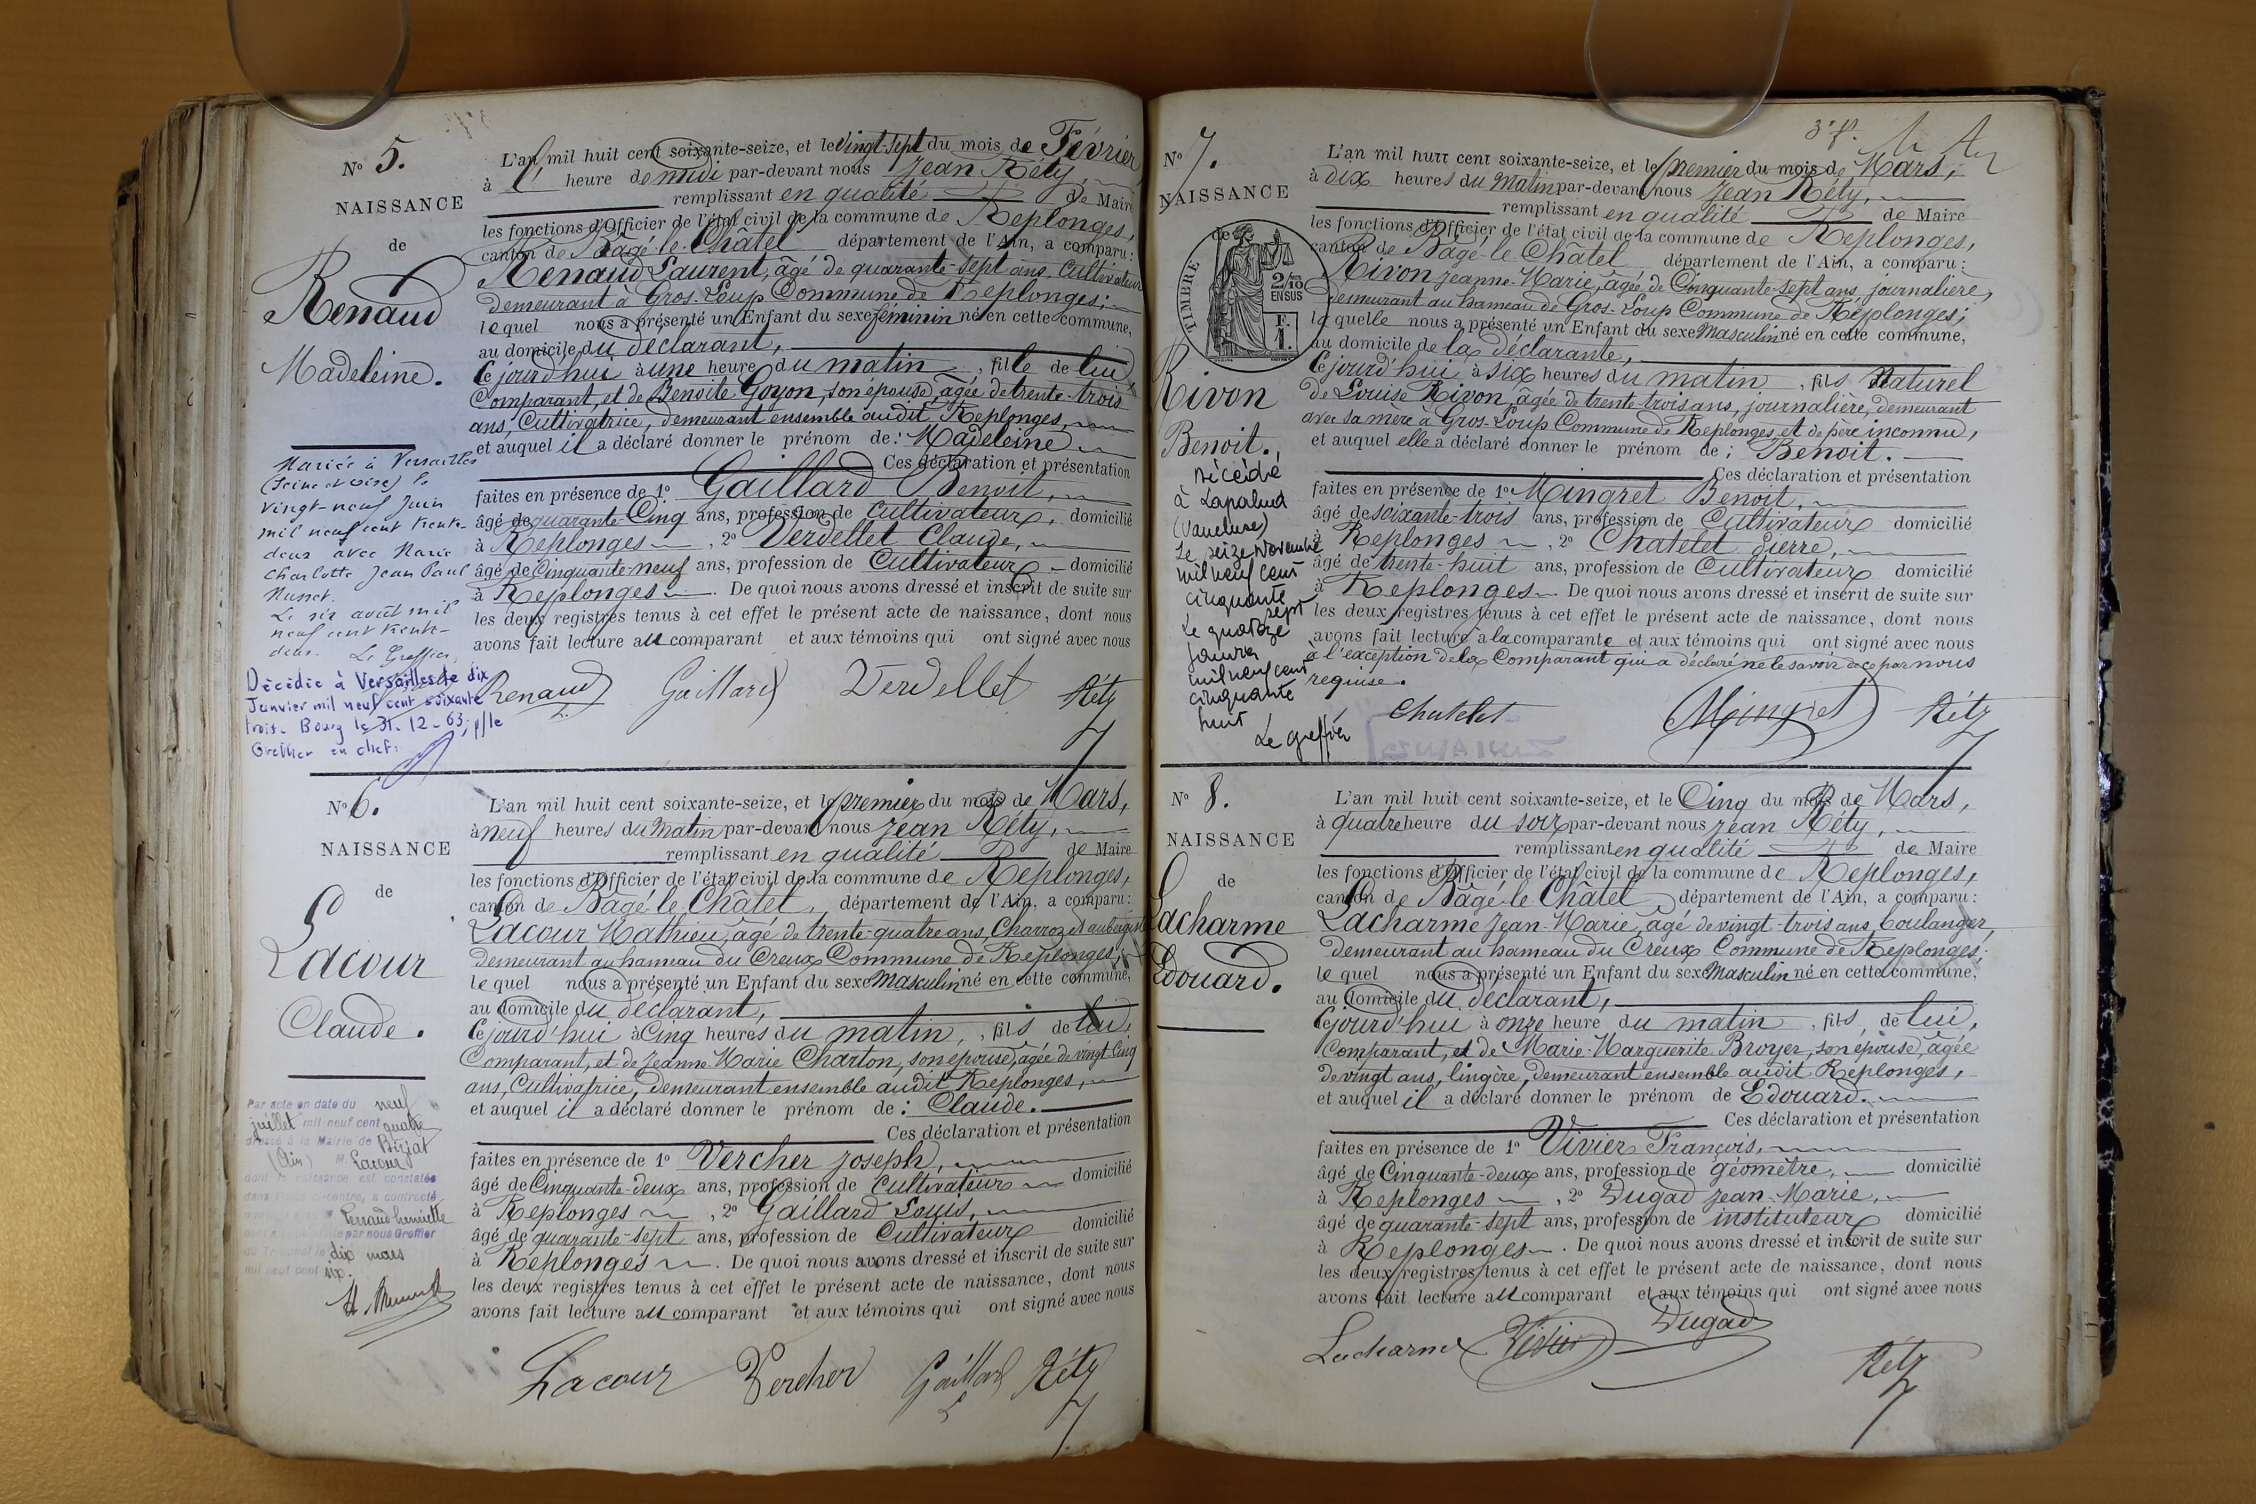 N° 5.
NAISSANCE
de
Renaud
Madeleine.
Mariée à Versailles
(Seine et Oise) le
vingt-neuf Juin
mil neuf cent trente-
deux avec Marie
Charlotte Jean Paul
Le six août mil
neuf cent trente-
deux. Le Greffier,
Décédée à Versailles le dix
Janvier mil neuf cent soixante
trois. Bourg le 31-12-63; p/le
Greffier en chef:
L'an mil huit cent soixante-seize, et le vingt-sept du mois de Février,
à 1, heure de midi par-devant nous Jean Réty,
remplissant en qualité de Maire
les fonctions d'Officier de l'état civil de la commune de Replonges,
canton de Bâgé-le-Châtel département de l'Ain, a comparu:
Renaud Laurent, âgé de quarante-sept ans, Cultivateur
demeurant à Gros-Loup Commune de Replonges;
lequel nous a présenté un Enfant du sexe féminin né en cette commune,
au domicile du déclarant,
Cejourd'hui à une heure du matin, fille de lui
Comparant, et de Benoite Goyon, son épouse, âgée de trente-trois
ans, Cultivatrice, demeurant ensemble audit Replonges,
et auquel il a déclaré donner le prénom de: Madeleine
Ces déclaration et présentation
faites en présence de 1° Gaillard Benoit,
âgé de quarante-Cinq ans, profession de Cultivateur, domicilié
à Replonges, 2° Verdellet Claude,
âgé de Cinquante-neuf ans, profession de Cultivateur domicilié
à Replonges. De quoi nous avons dressé et inscrit de suite sur
les deux registres tenus à cet effet le présent acte de naissance, dont nous
avons fait lecture au comparant et aux témoins qui ont signé avec nous
Renaud Gaillard Verdellet Réty
N° 6.
NAISSANCE
de
Lacour
Claude.
Par acte en date du neuf
juillet mil neuf cent quatre
dressé à la Mairie de Biziat
(Ain) M. Lacour
dont la naissance est constatée
dans l'acte ci-contre, a contracté
Renaud henriette
par nous Greffier
du Tribunal le dix mars
mil neuf cent six.
L'an mil huit cent soixante-seize, et le premier du mois de Mars,
à neuf heures du Matin par-devant nous Jean Réty,
remplissant en qualité de Maire
les fonctions d'Officier de l'état civil de la commune de Replonges,
canton de Bâgé-le-Châtel, département de l'Ain, a comparu:
Lacour Mathieu, âgé de trente-quatre ans, Charron et aubergiste
demeurant au hameau du Creux Commune de Replonges;
lequel nous a présenté un Enfant du sexe Masculin né en cette commune,
au domicile du déclarant,
Cejourd'hui à Cinq heures du matin, fils de lui,
Comparant, et de Jeanne Marie Charton, son épouse, âgée de vingt Cinq
ans, Cultivatrice, demeurant ensemble audit Replonges,
et auquel il a déclaré donner le prénom de: Claude.
Ces déclaration et présentation
faites en présence de 1° Vercher Joseph,
âgé de Cinquante-deux ans, profession de Cultivateur domicilié
à Replonges, 2° Gaillard Louis,
âgé de quarante-sept ans, profession de Cultivateur domicilié
à Replonges. De quoi nous avons dressé et inscrit de suite sur
les deux registres tenus à cet effet le présent acte de naissance, dont nous
avons fait lecture au comparant et aux témoins qui ont signé avec nous
Lacour Vercher Gaillard Réty
L
3e f.
N° 7.
NAISSANCE
de
TIMBRE
2/10
EN SUS
F.
1.
Rivon
Benoit.
Décédé
à Lapalud
(Vaucluse)
Le seize Novembre
mil neuf cent
cinquante
sept
Le quatorze
janvier
mil neuf cent
cinquante
huit
Le greffier
L'an mil huit cent soixante-seize, et le premier du mois de Mars,
à dix heures du Matin par-devant nous Jean Réty,
remplissant en qualité de Maire
les fonctions d'Officier de l'état civil de la commune de Replonges,
canton de Bâgé-le-Châtel département de l'Ain, a comparu:
Rivon Jeanne-Marie, âgée de Cinquante-sept ans, journalière,
demeurant au hameau de Gros-Loup Commune de Replonges;
laquelle nous a présenté un Enfant du sexe Masculin né en cette commune,
au domicile de la déclarante,
Cejourd'hui à six heures du matin, fils Naturel
de Louise Rivon, âgée de trente-trois ans, journalière, demeurant
avec sa mère à Gros-Loup Commune de Replonges, et de père inconnu,
et auquel elle a déclaré donner le prénom de; Benoit.
Ces déclaration et présentation
faites en présence de 1° Mingret Benoit,
âgé de soixante-trois ans, profession de Cultivateur domicilié
à Replonges, 2° Chatelet Pierre,
âgé de trente-huit ans, profession de Cultivateur domicilié
à Replonges. De quoi nous avons dressé et inscrit de suite sur
les deux registres tenus à cet effet le présent acte de naissance, dont nous
avons fait lecture à la comparante et aux témoins qui ont signé avec nous
à l'exception de la Comparant qui a déclaré ne le savoir de ce par nous
requise.
Chatelet Mingret Réty
N° 8.
NAISSANCE
de
Lacharme
Edouard.
L'an mil huit cent soixante-seize, et le Cinq du mois de Mars,
à quatre heure du soir par-devant nous Jean Réty,
remplissant en qualité de Maire
les fonctions d'Officier de l'état civil de la commune de Replonges,
canton de Bâgé-le-Châtel, département de l'Ain, a comparu:
Lacharme Jean-Marie, âgé de vingt-trois ans, boulanger,
demeurant au hameau du Creux Commune de Replonges;
lequel nous a présenté un Enfant du sexe Masculin né en cette commune,
au domicile du déclarant,
Cejourd'hui à onze heure du matin, fils, de lui,
Comparant, et de Marie-Marguerite Broyer, son épouse, âgée
de vingt ans, lingère, demeurant ensemble audit Replonges,
et auquel il a déclaré donner le prénom de Edouard.
Ces déclaration et présentation
faites en présence de 1° Vivier François,
âgé de Cinquante-deux ans, profession de géomètre, domicilié
à Replonges, 2° Dugad Jean-Marie,
âgé de quarante-sept ans, profession de instituteur domicilié
à Replonges. De quoi nous avons dressé et inscrit de suite sur
les deux registres tenus à cet effet le présent acte de naissance, dont nous
avons fait lecture au comparant et aux témoins qui ont signé avec nous
Lacharme Vivier Dugad
Réty